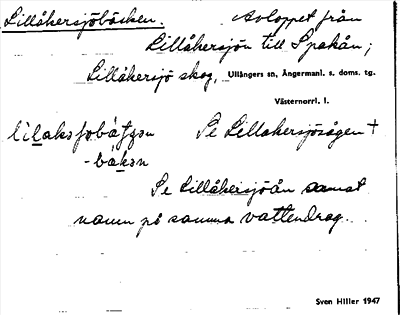 Lillåkersjöbäcken. Avloppet från
Lillåkersjön till Spakån;
Lillåkersjö skog, Ullångers sn, Ångermanl. s. doms. tg.
Västernorrl. l.
Se Lillåkersjösågen +
Se Lillåkersjöån samst
namn på samma vattendrag.
Sven Hiller 1947